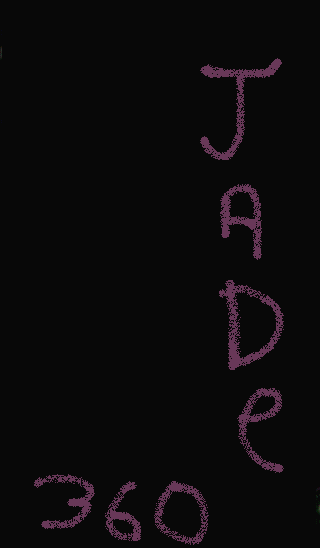 JADe
360